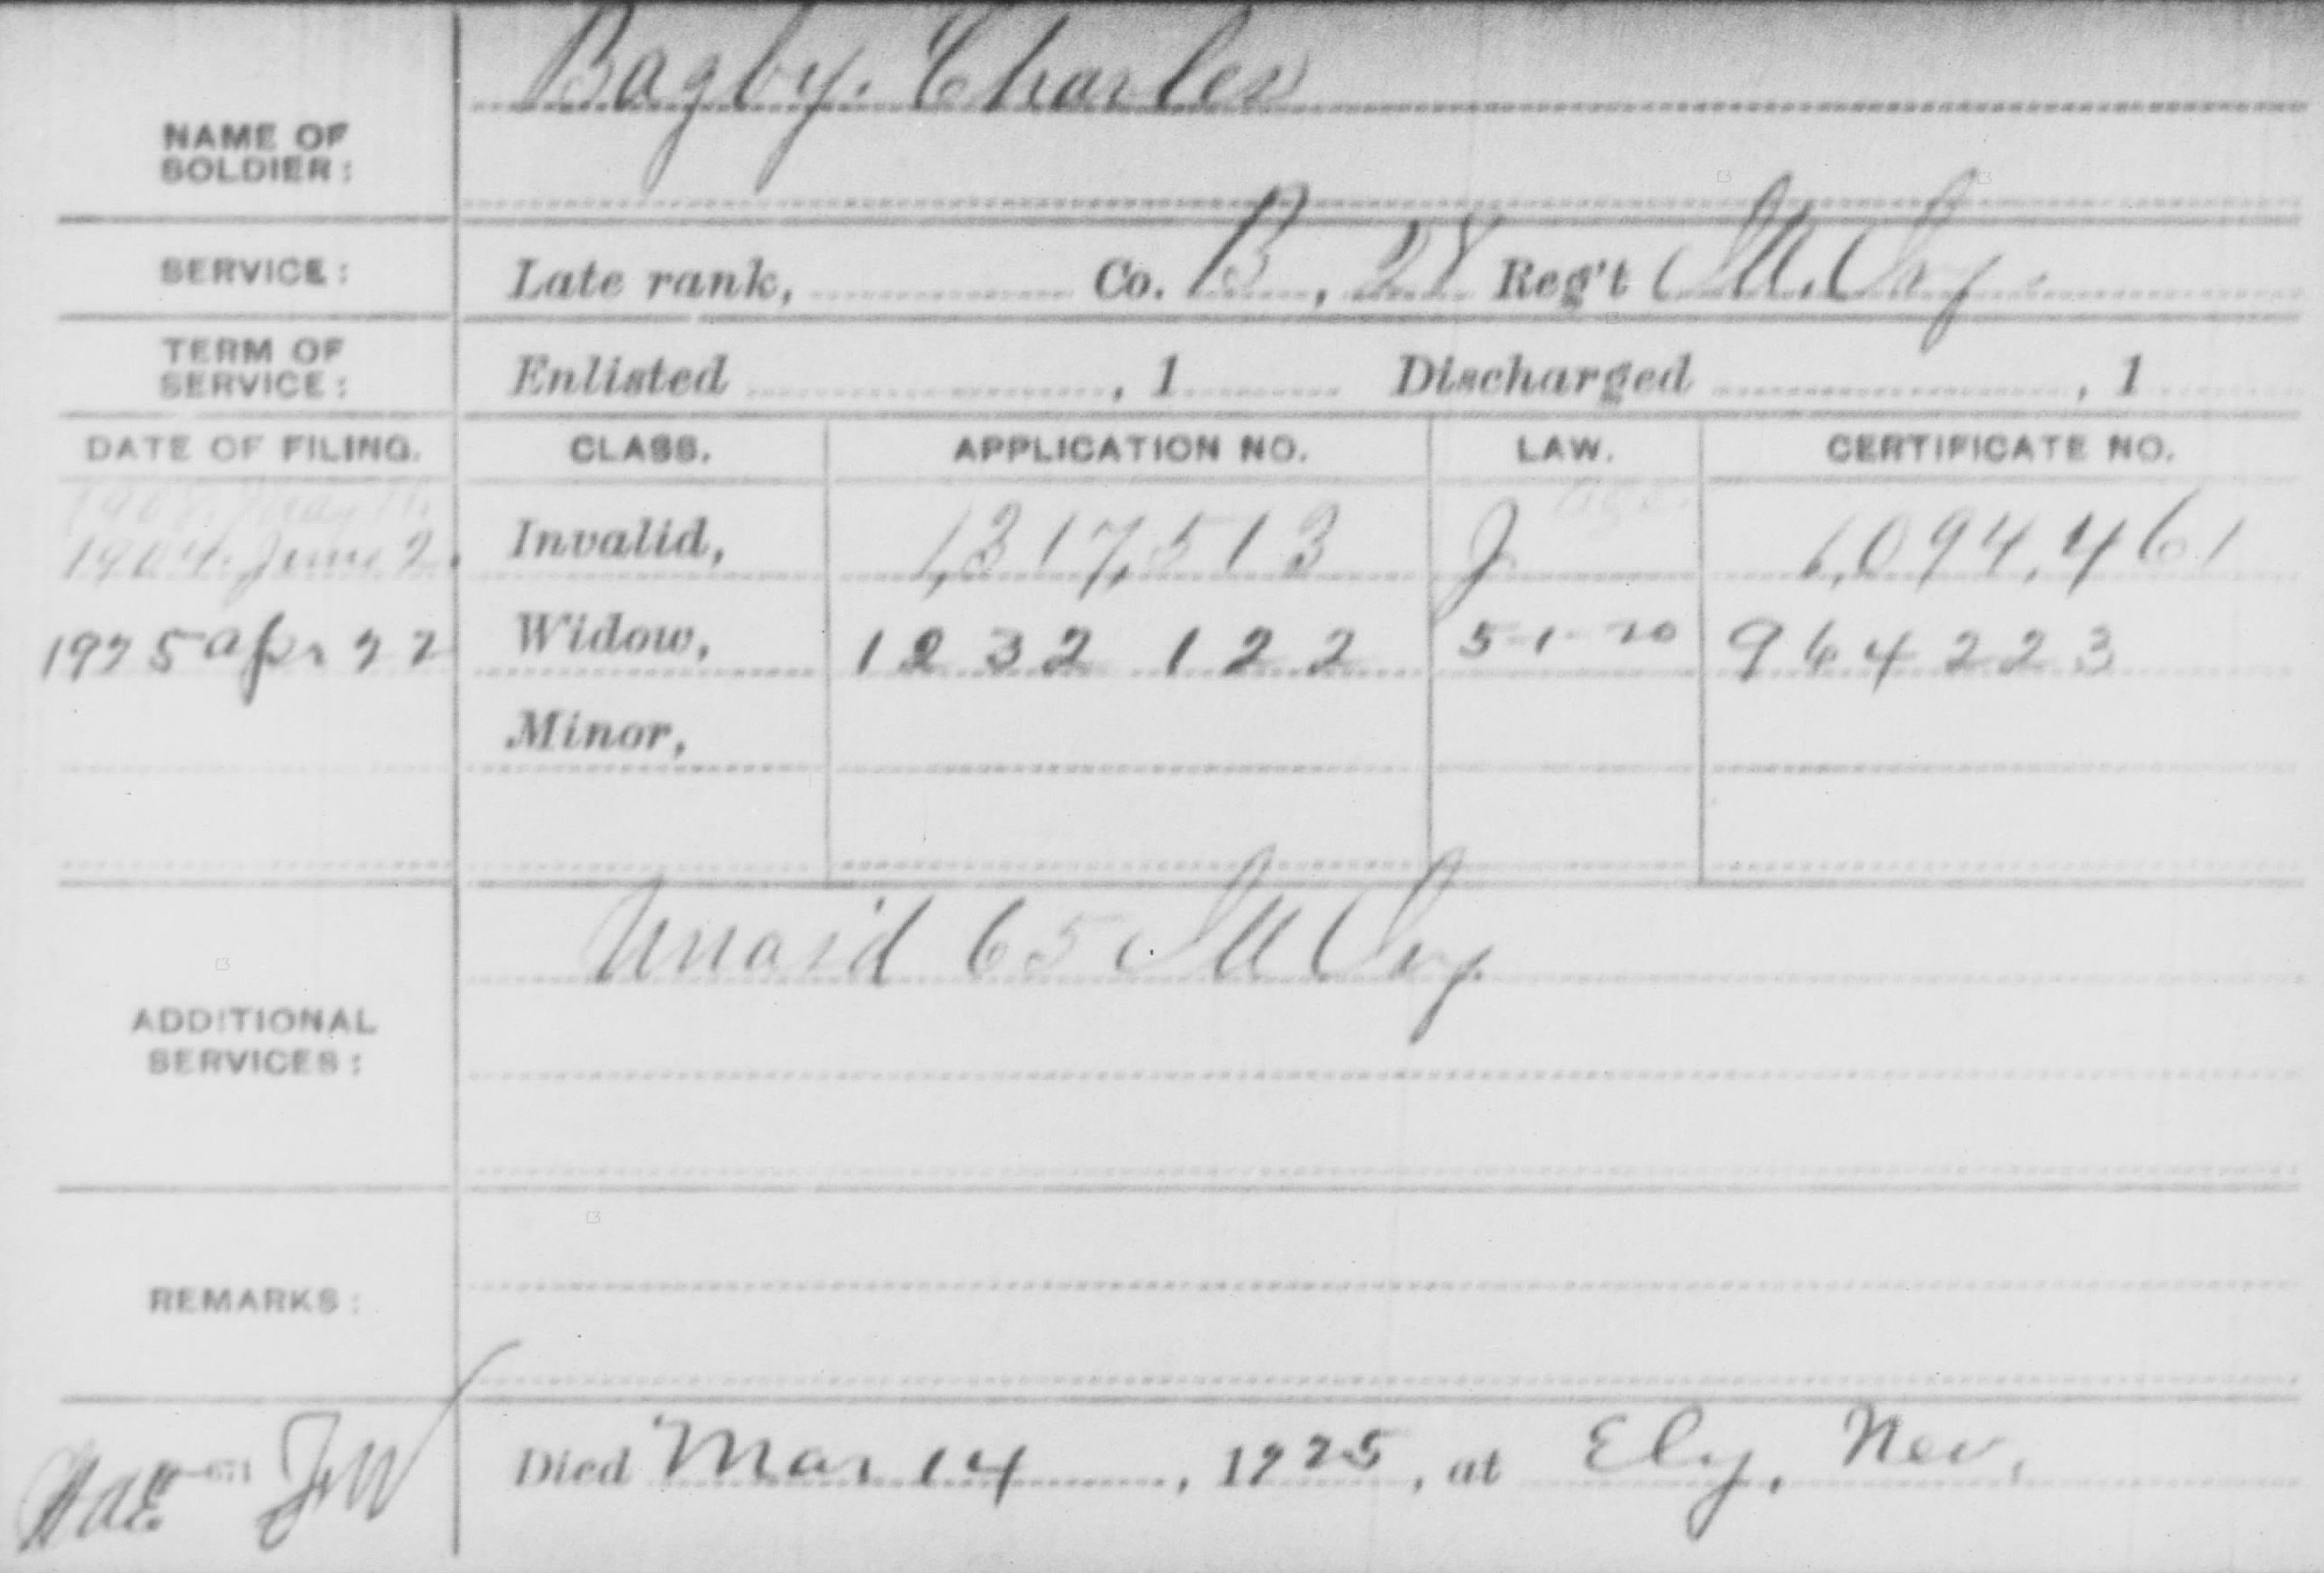 Bagby, Charles
NAME OF
SOLDIER:
SERVICE: Late rank, Co. B, 28 Reg't Ill. Inf.
TERM OF
SERVICE: Enlisted , 1 Discharged , 1
DATE OF FILING. CLASS. APPLICATION NO. LAW. CERTIFICATE NO.
1904. June 2. Invalid, 1,317,513 J 1,094,461
1925 Apr 22 Widow, 1232 122 5-1-20 964223
Minor,
Unas'd 65 Ill Inf.
ADDITIONAL
SERVICES:
REMARKS:
Died Mar 14, 1925, at Ely, Nev.